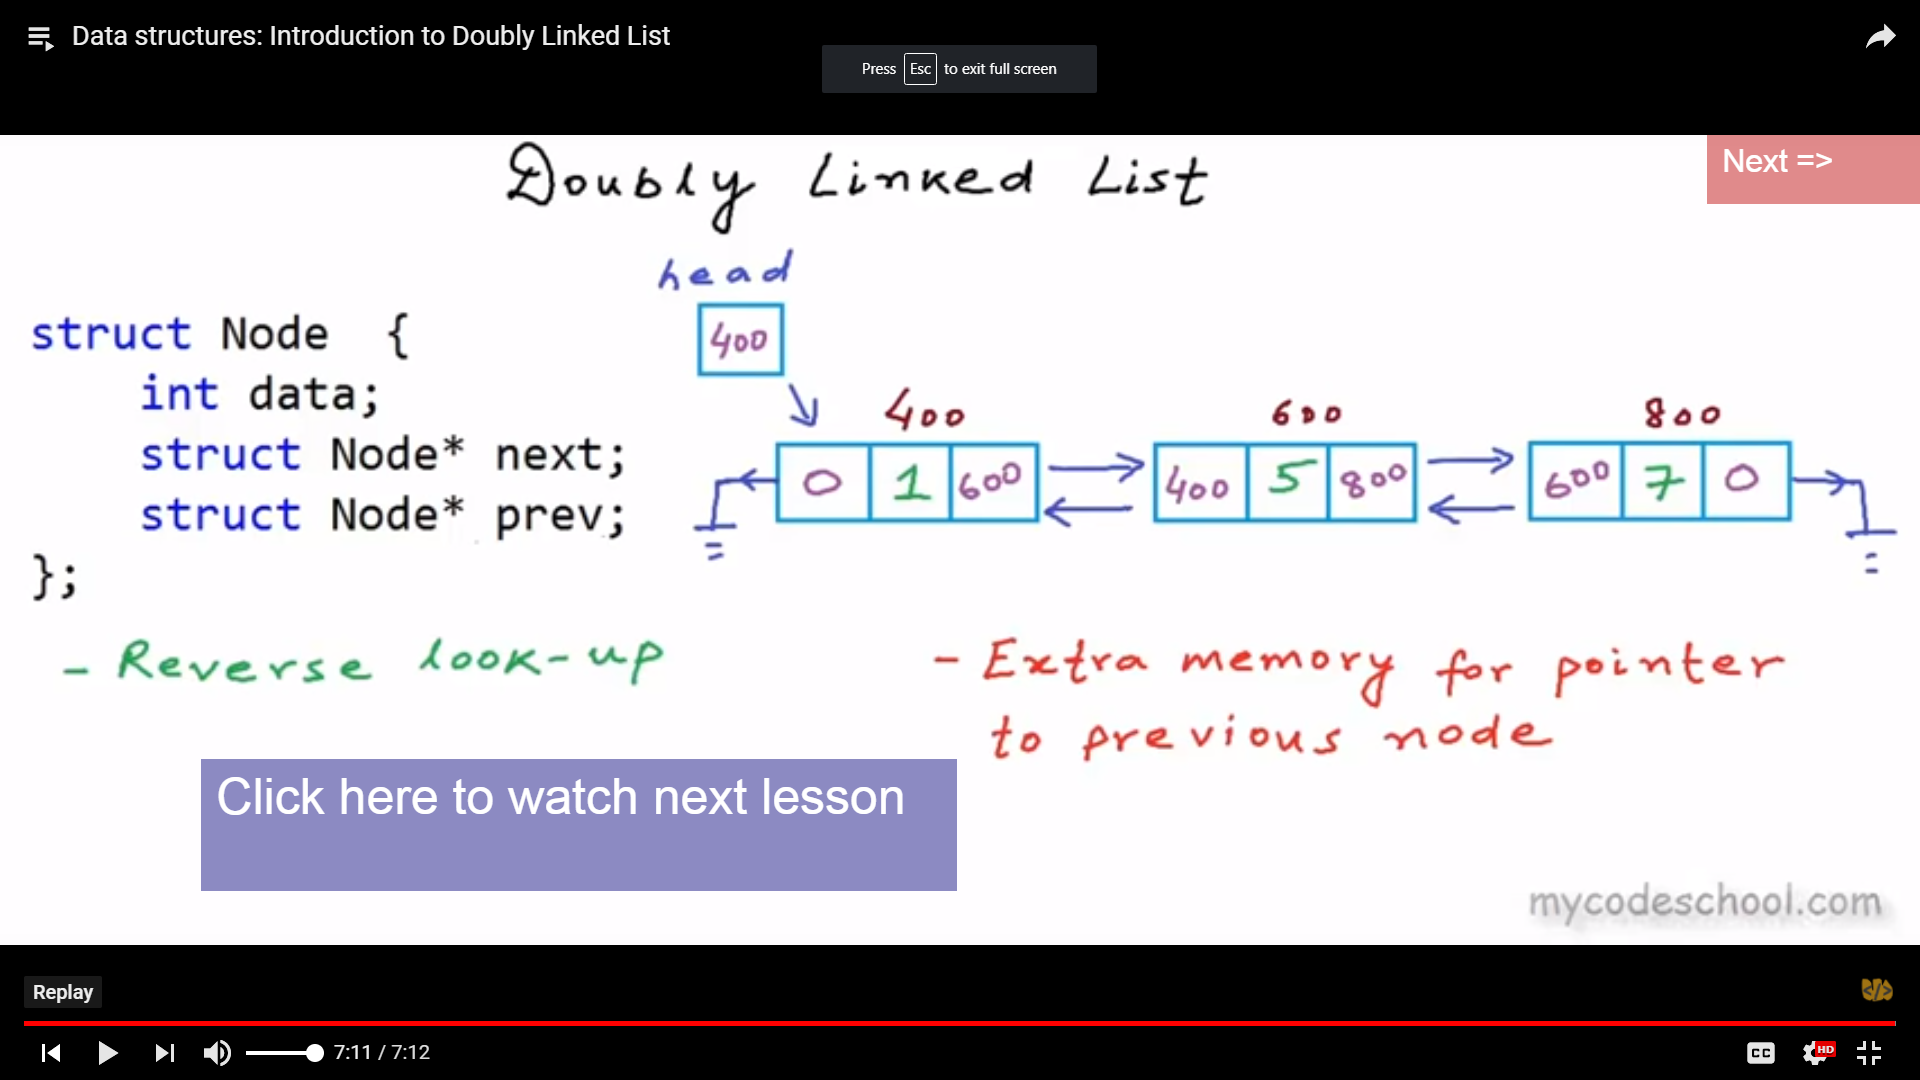 Data structures: Introduction to Doubly Linked List
Press Esc to exit full screen
Next =>
Doubly Linked List
head
400
struct Node {
int data;
struct Node* next;
struct Node* prev;
};
400 600 800
0 1 600 400 5 800 600 7 0
- Reverse look-up
- Extra memory for pointer
to previous node
Click here to watch next lesson
mycodeschool.com
Replay
7:11 / 7:12
CC
HD